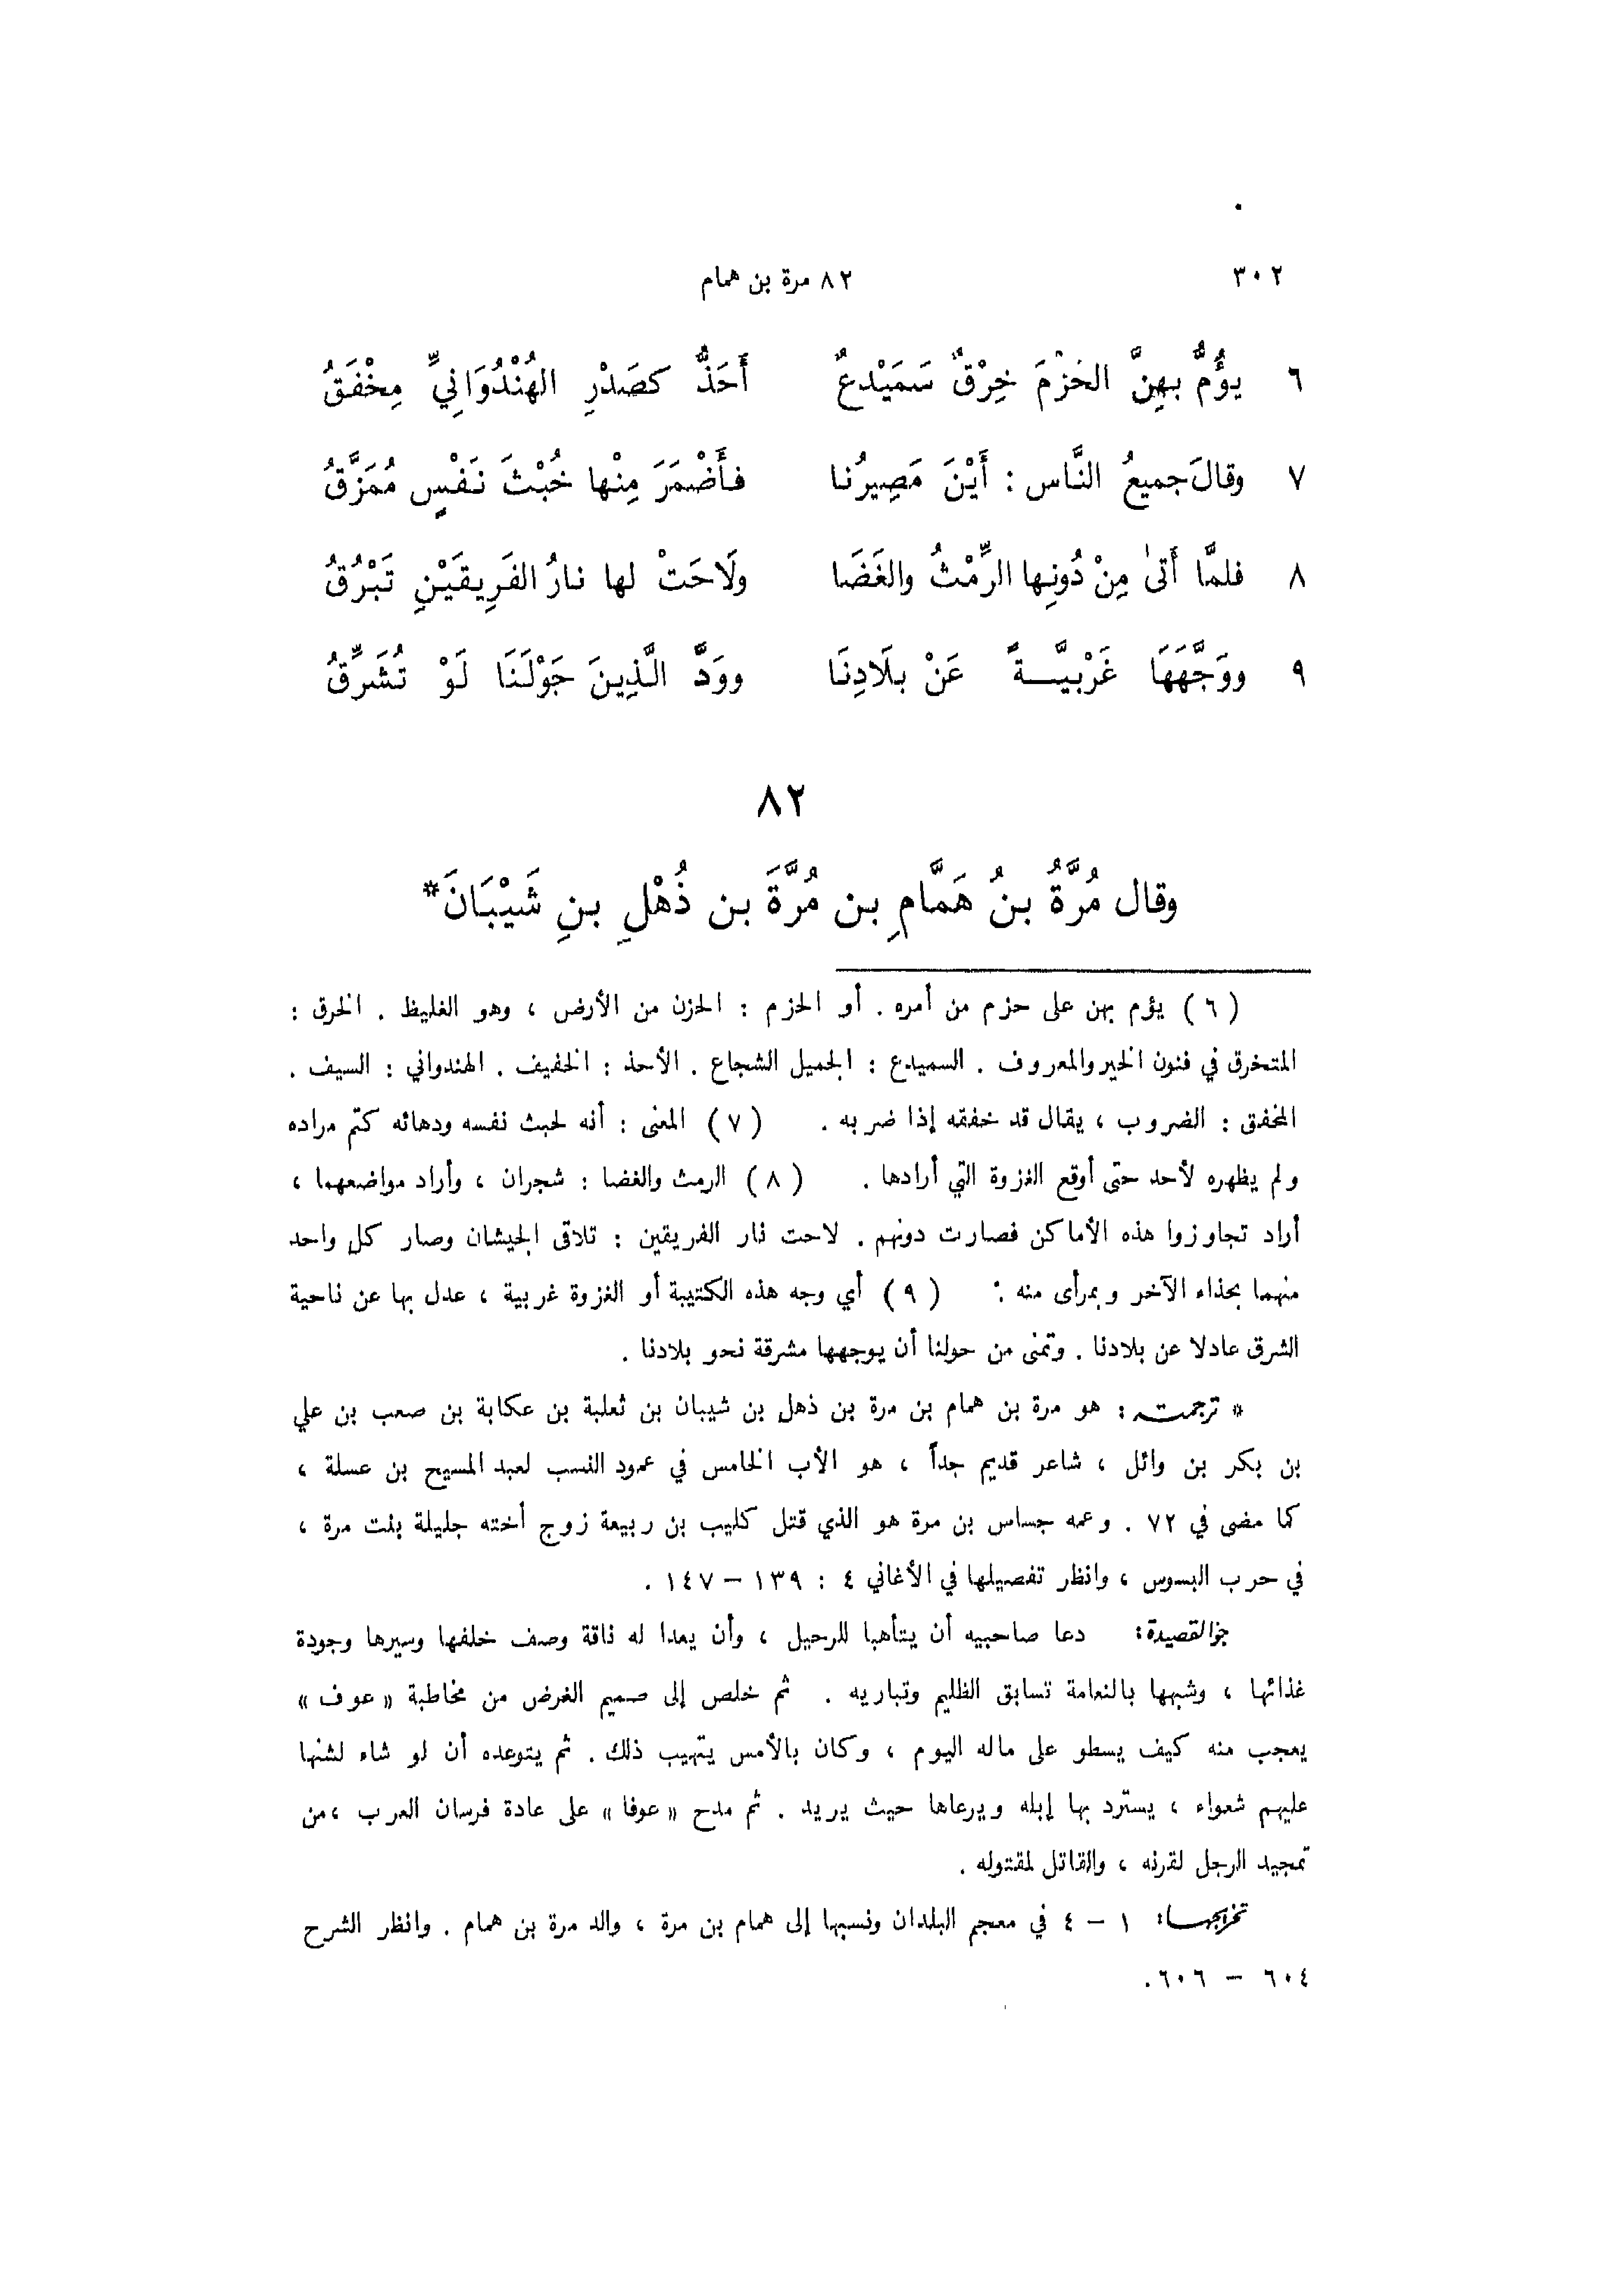 ٣٠٢ ٨٢ مرة بن همام
٦ يؤُمُّ بهِنَّ الحَزْمَ خِرْقٌ سَمَيْدعٌ أَحَذُّ كصَدْرِ الهُنْدُوَانِيِّ مِخْفَقُ
٧ وقالَ جميعُ النَّاس : أَيْنَ مَصِيرُنا فأَضْمَرَ مِنْها خُبْثَ نَفْسٍ مُمَزَّقُ
٨ فلمَّا أَتىٰ مِنْ دُونِها الرِّمْثُ والغَضَا ولَاحَتْ لها نارُ الفَرِيقَيْنِ تَبْرُقُ
٩ ووَجَّهَهَا غَرْبيَّــةً عَنْ بلَادِنَا ووَدَّ الَّذِينَ حَوْلَنَا لَوْ تُشَرِّقُ
٨٢
وقال مُرَّةُ بنُ هَمَّامِ بن مُرَّةَ بن ذُهْلِ بنِ شَيْبَانَ*
( ٦ ) يؤم بهن على حزم من أمره . أو الحزم : الحزن من الأرض ، وهو الغليظ . الخرق :
المتخرق في فنون الخير والمعروف . السميدع : الجميل الشجاع . الأحذ : الخفيف . الهندواني : السيف .
المخفق : الضروب ، يقال قد خفقه إذا ضربه . ( ٧ ) المعنى : أنه لخبث نفسه ودهائه كتم مراده
ولم يظهره لأحد حتى أوقع الغزوة التي أرادها . ( ٨ ) الرمث والغضا : شجران ، وأراد مواضعهما ،
أراد تجاوزوا هذه الأماكن فصارت دونهم . لاحت نار الفريقين : تلاقى الجيشان وصار كل واحد
منهما بحذاء الآخر وبمرأى منه . ( ٩ ) أي وجه هذه الكتيبة أو الغزوة غربية ، عدل بها عن ناحية
الشرق عادلا عن بلادنا . وتمنى من حولنا أن يوجهها مشرقة نحو بلادنا .
* ترجمته : هو مرة بن همام بن مرة بن ذهل بن شيبان بن ثعلبة بن عكابة بن صعب بن علي
بن بكر بن وائل ، شاعر قديم جداً ، هو الأب الخامس في عمود النسب لعبد المسيح بن عسلة ،
كما مضى في ٧٢ . وعمه جساس بن مرة هو الذي قتل كليب بن ربيعة زوج أخته جليلة بنت مرة ،
في حرب البسوس ، وانظر تفصيلها في الأغاني ٤ : ١٣٩ – ١٤٧ .
جو القصيدة : دعا صاحبيه أن يتأهبا للرحيل ، وأن يعدا له ناقة وصف خلفها وسيرها وجودة
غذائها ، وشبهها بالنعامة تسابق الظليم وتباريه . ثم خلص إلى صميم الغرض من مخاطبة « عوف »
يعجب منه كيف يسطو على ماله اليوم ، وكان بالأمس يتهيب ذلك . ثم يتوعده أن لو شاء لشنها
عليهم شعواء ، يسترد بها إبله ويرعاها حيث يريد . ثم مدح « عوفا » على عادة فرسان العرب ، من
تمجيد الرجل لقرنه ، والقاتل لمقتوله .
تخريجها : ١ – ٤ في معجم البلدان ونسبها إلى همام بن مرة ، والد مرة بن همام . وانظر الشرح
٦٠٤ – ٦٠٦ .